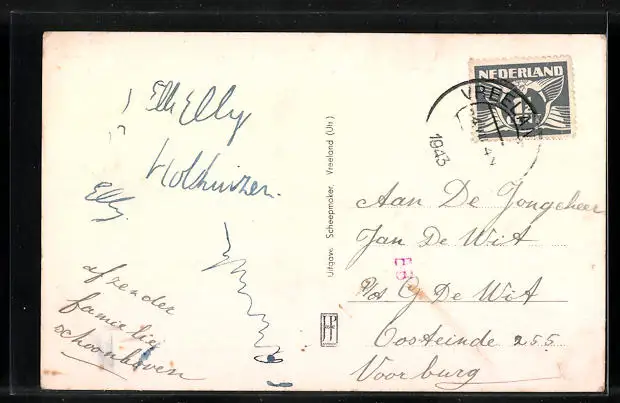 Elly
Holthuizen.
Elly.
afzender
familie
schoonhoven
Uitgave: Scheepmaker, Vreeland (Utr.)
NEDERLAND
VREELAND
1943
Aan De Jongeheer
Jan De Wit
E3
p/a G De Wit
Oosteinde 255
Voorburg